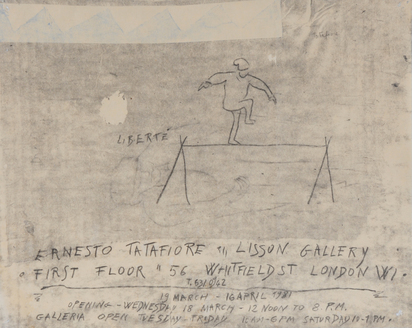 LIBERTÉ
ERNESTO TATAFIORE LISSON GALLERY
FIRST FLOOR " 56 WHITFIELD ST LONDON W1.
19 MARCH - 16 APRIL 1981
OPENING - WEDNESDAY 18 MARCH - 12 NOON TO 8 P.M.
GALLERIA OPEN TUESDAY FRIDAY 11 AM - 6 PM SATURDAY 10 - 1 PM.